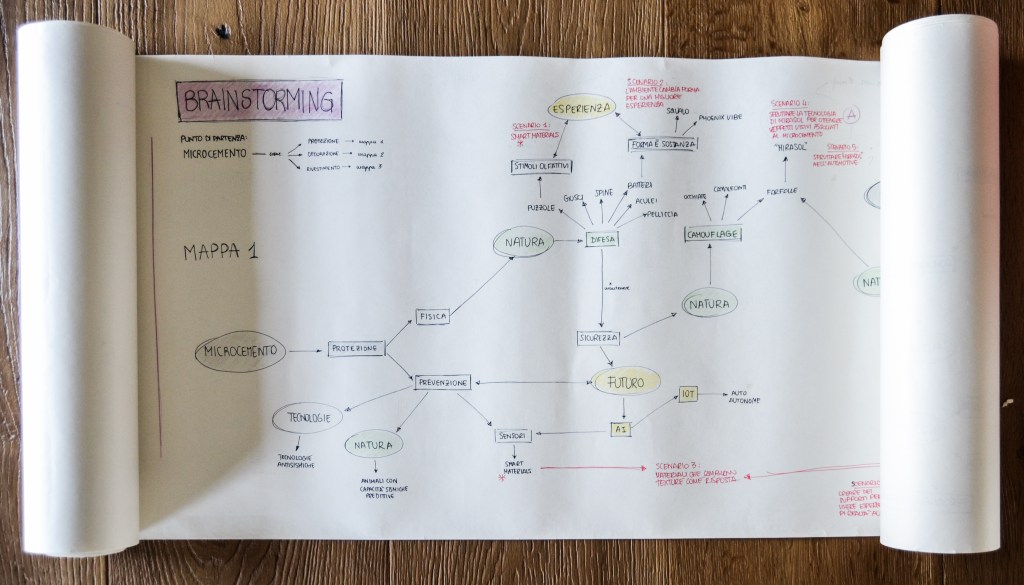 BRAINSTORMING
PUNTO DI PARTENZA:
MICROCEMENTO
COME
PROTEZIONE → MAPPA 1
DECORAZIONE → MAPPA 2
RIVESTIMENTO → MAPPA 3
MAPPA 1
MICROCEMENTO
PROTEZIONE
FISICA
PREVENZIONE
TECNOLOGIE
TECNOLOGIE
ANTISISMICHE
NATURA
ANIMALI CON
CAPACITÀ SISMICHE
PREDITTIVE
SENSORI
SMART
MATERIALS
*
NATURA
DIFESA
PUZZOLE
GUSCI
SPINE
BATTERI
ACULEI
PELLICCIA
STIMOLI OLFATTIVI
SCENARIO 1:
SMART MATERIALS
*
ESPERIENZA
SCENARIO 2:
L'AMBIENTE CAMBIA FORMA
PER UNA MIGLIORE
ESPERIENZA
FORMA È SOSTANZA
SQUALO
PHOENIX VIBE
SICUREZZA
FUTURO
AI
IOT
AUTO
AUTONOME
NATURA
CAMOUFLAGE
OCCHIAIE
FARFALLE
"MIRASOL"
SCENARIO 4:
SFRUTTARE LA TECNOLOGIA
DI MIRASOL PER OTTENERE
EFFETTI VISIVI ASSOCIATI
AL MICROCEMENTO
A
SCENARIO 5:
SFRUTTARE "MIRASOL"
NELL'AUTOMOTIVE
NAT
SCENARIO 3:
MATERIALI CHE CAMBIANO
TEXTURE COME RISPOSTA
SCENARIO
CREARE DEI
SUPPORTI PER